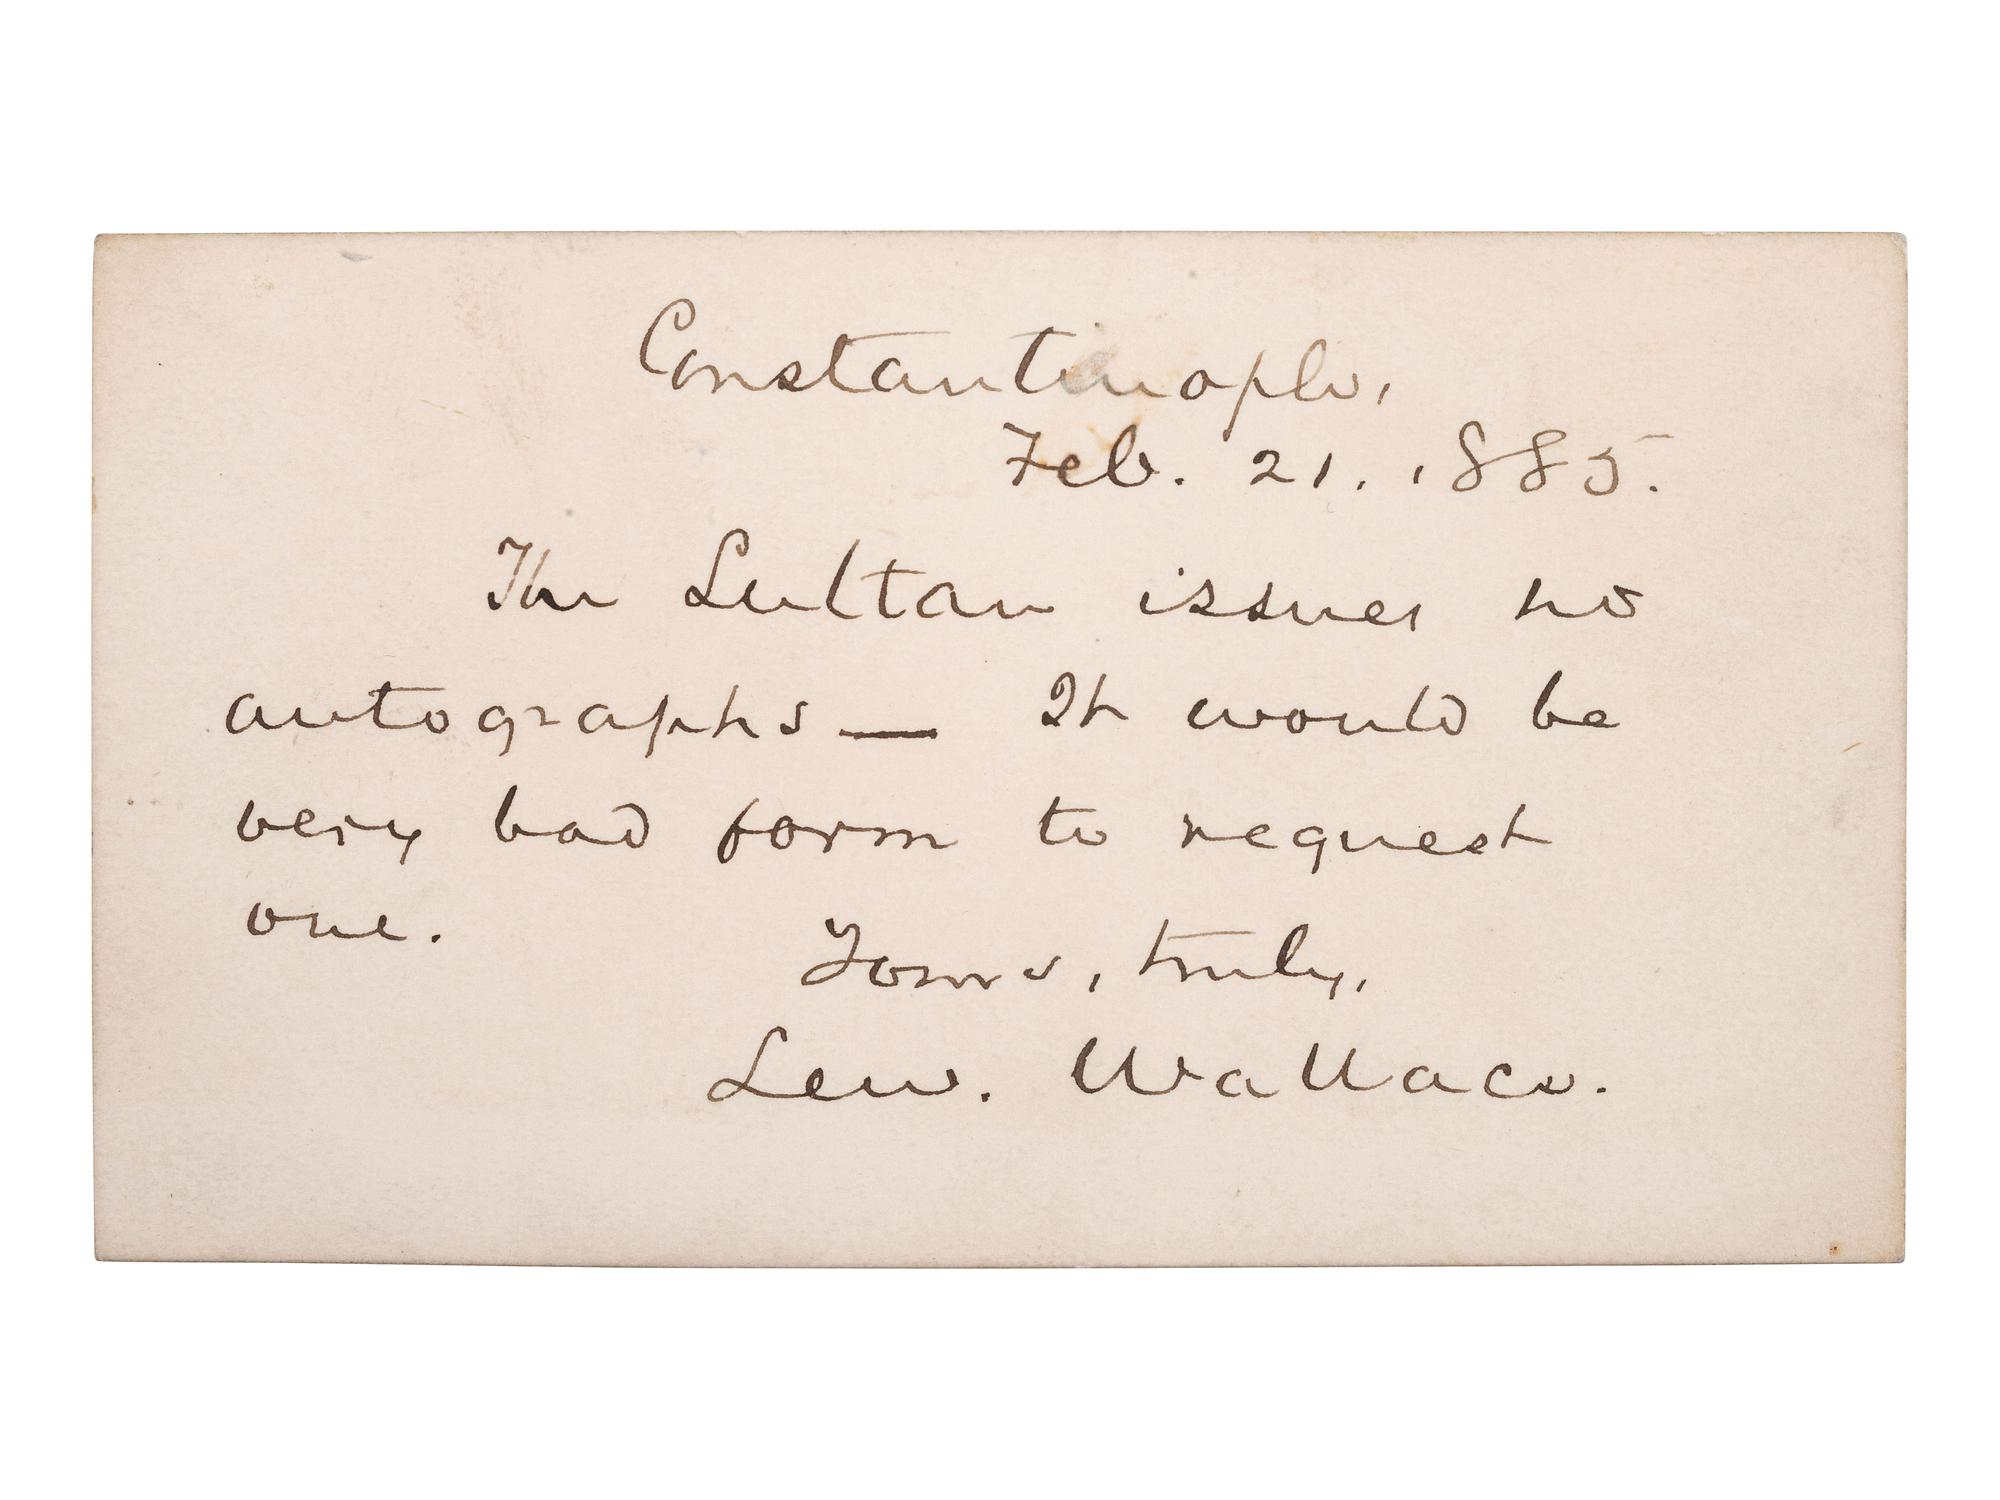 Constantinople,
Feb. 21. 1885.
The Sultan issues no
autographs — It would be
very bad form to request
one.
Yours, truly,
Lew. Wallace.